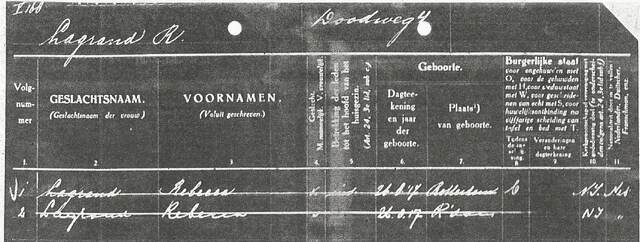 I 160
Lagrand R. Doodweg 4
Volgnummer
GESLACHTSNAAM.
(Geslachtsnaam der vrouw)
VOORNAMEN.
(Voluit geschreven)
Geslacht.
M. mannenlijk, V. vrouwelijk
Betrekking der leden
tot het hoofd van het
huisgezin.
(Art. 24, 3e lid, sub c.)
Geboorte.
Dagteekening
en jaar
der
geboorte.
Plaats¹)
van geboorte.
Burgerlijke staat
voor ongehuwden met
O, voor de gehuwden
met H, voor weduwstaat
met W, voor gescheidenen
van echt met S, voor
huwelijksontbinding na
vijfjarige scheiding van
tafel en bed met T.
Veranderingen en hare
dagteekening
1. 2. 3. 4. 5. 6. 7. 8. 9. 10. 11.
1 Lagrand Rebecca 26.8.'17 Rotterdam O N.I. Ned
2 Lagrand Rebecca 26.8.17 R'dam N.I. "